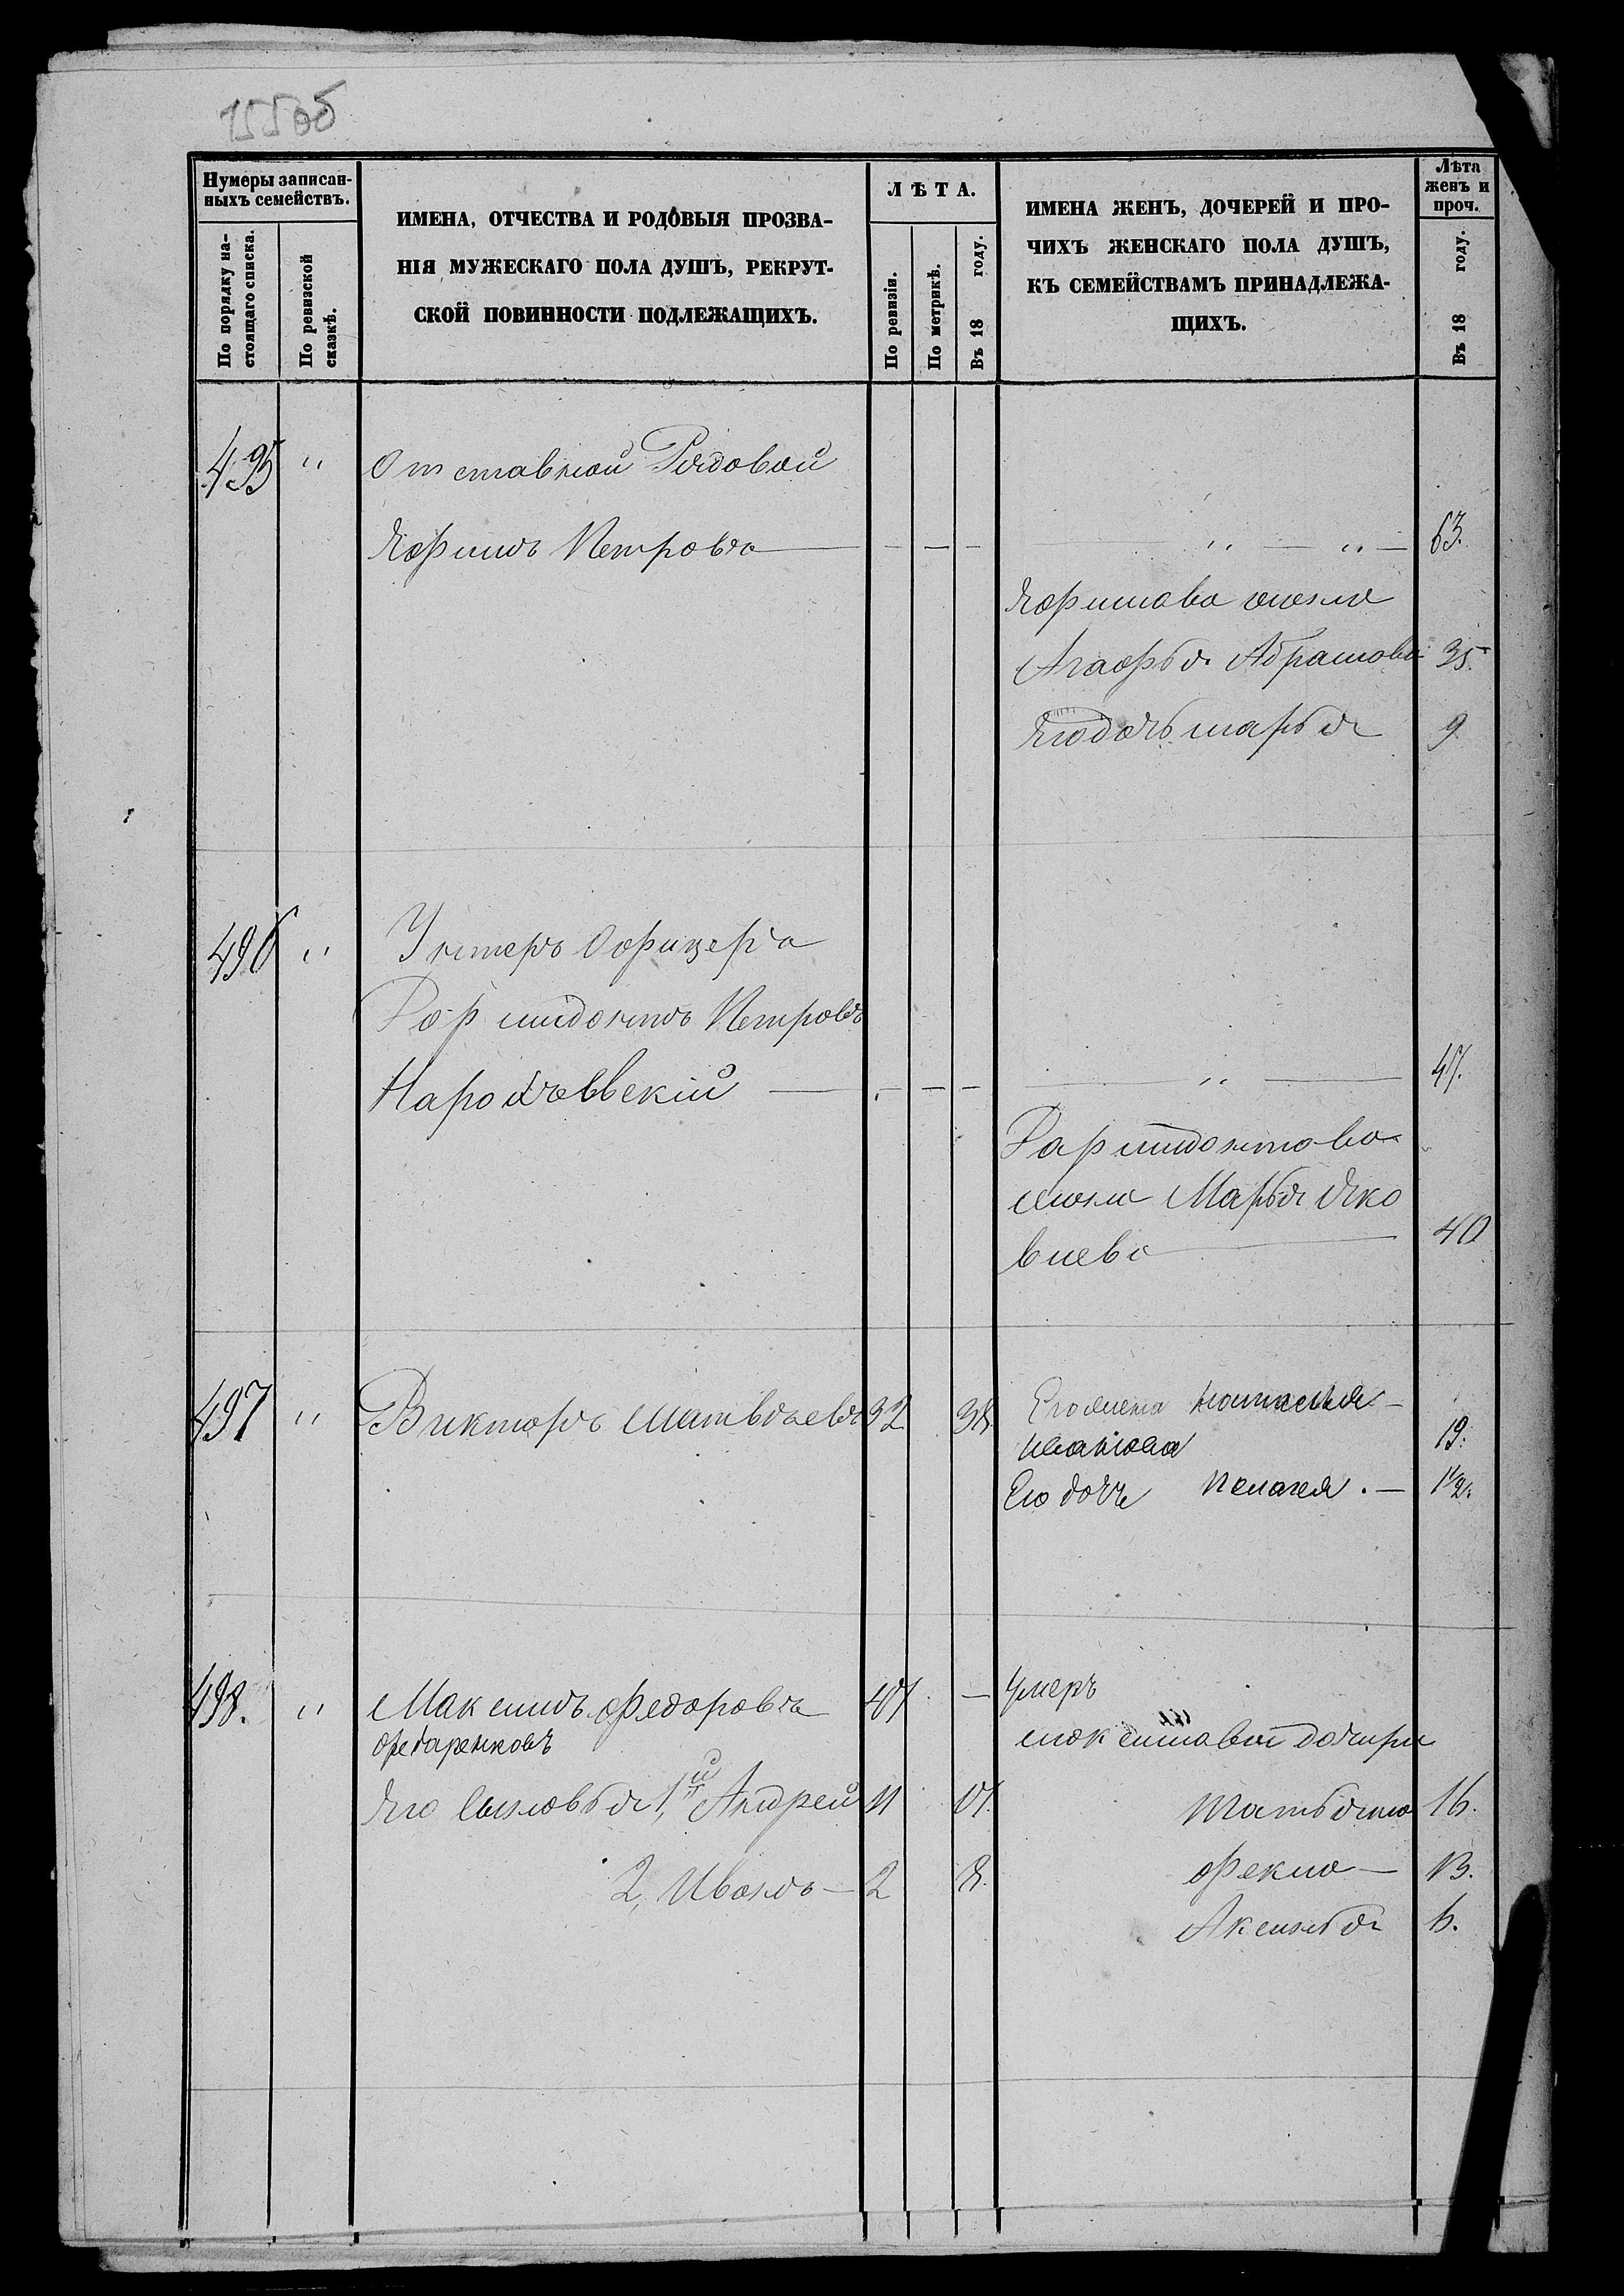 155об
Нумеры записан-
ныхъ семействъ.
По порядку на-
стоящаго списка.
По ревизской
сказкѣ.
ИМЕНА, ОТЧЕСТВА И РОДОВЫЯ ПРОЗВА-
НІЯ МУЖЕСКАГО ПОЛА ДУШЪ, РЕКРУТ-
СКОЙ ПОВИННОСТИ ПОДЛЕЖАЩИХЪ.
ЛѢТА.
По ревизіи.
По метрикѣ.
Въ 18 году.
ИМЕНА ЖЕНЪ, ДОЧЕРЕЙ И ПРО-
ЧИХЪ ЖЕНСКАГО ПОЛА ДУШЪ,
КЪ СЕМЕЙСТВАМЪ ПРИНАДЛЕЖА-
ЩИХЪ.
Лѣта
женъ и
проч.
Въ 18 году.
495 " Отставной Рядовой
Ефимъ Петровъ — — — — " — " — 63.
Ефимова жена
Агафья Абрамова 35.
Его дочь марья 9
496 " Унтеръ Офицеръ
Петровъ
— — — — " — 47.
жена Марья Яко
влева — 40
497 " Викторъ Матвѣевъ 32 38. Его жена Наталья —
Иванова 19.
Его дочь Пелагея. — 1½.
498. " Максимъ Федоровъ 47 — Умеръ
Федаренковъ
Максимовы дочери
Его Сыновья 1й Андрей 11 17. Татьяна 16.
2, Иванъ — 2 8. Фекла — 13.
Аксинья 6.